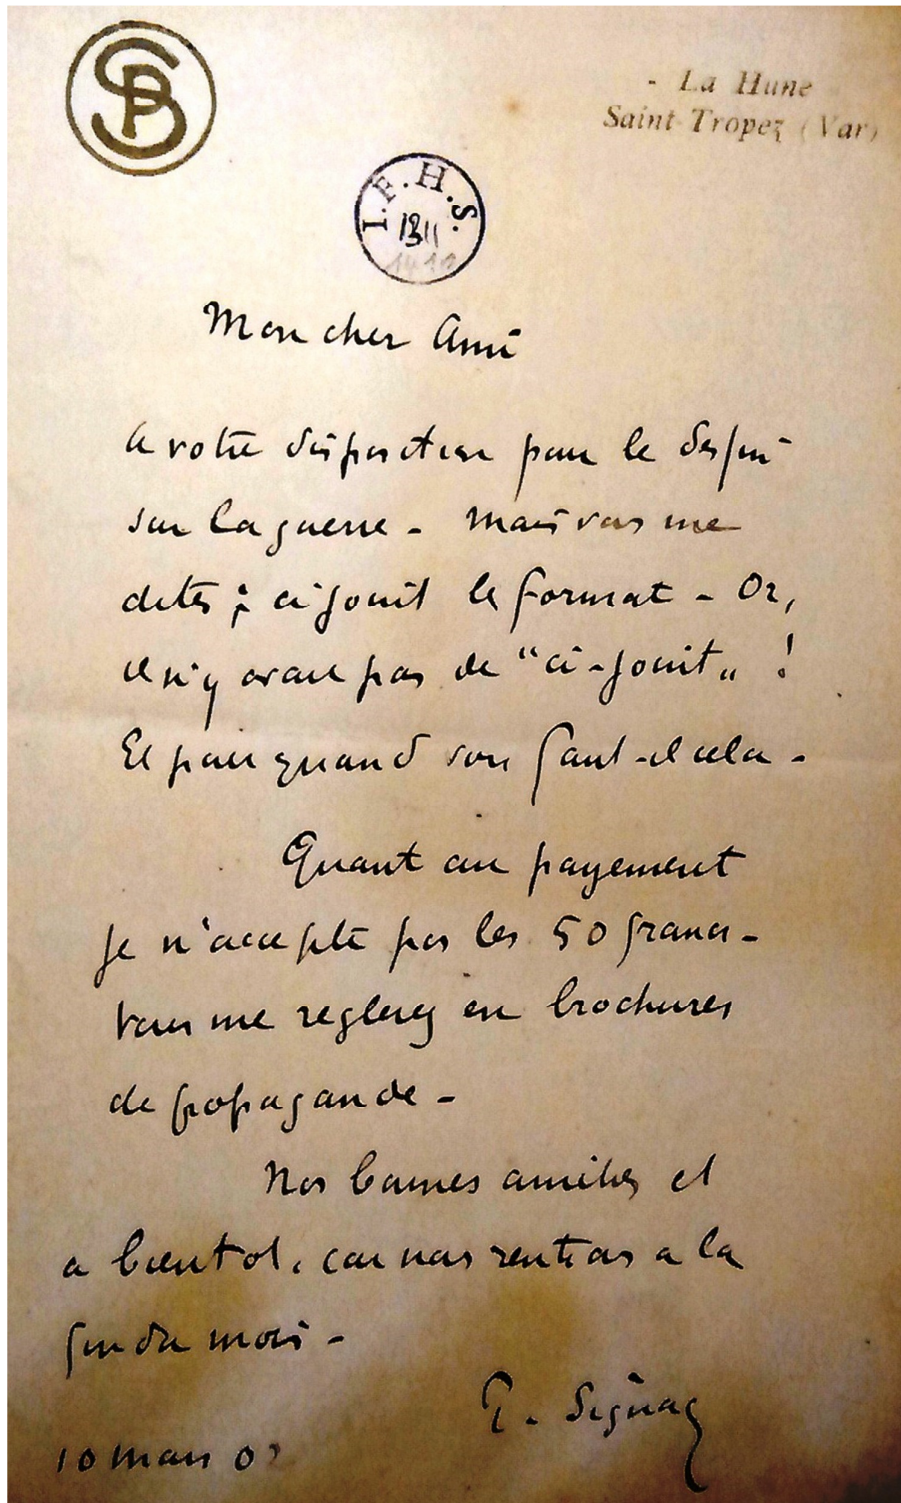 SP
- La Hune
Saint-Tropez (Var)
I.F.H.S.
Mon cher Ami
A votre disposition pour le dessin
sur la guerre - Mais vous me
dites ; ci joint le format - Or,
il n'y avait pas de "ci-joint" !
Et pour quand vous faut-il cela -
Quant au payement
je n'accepte pas les 50 francs -
vous me reglerez en brochures
de propagande -
Nos bonnes amitiés et
a bientot, car nous rentrons a la
fin du mois -
P. Signac
10 mars 0